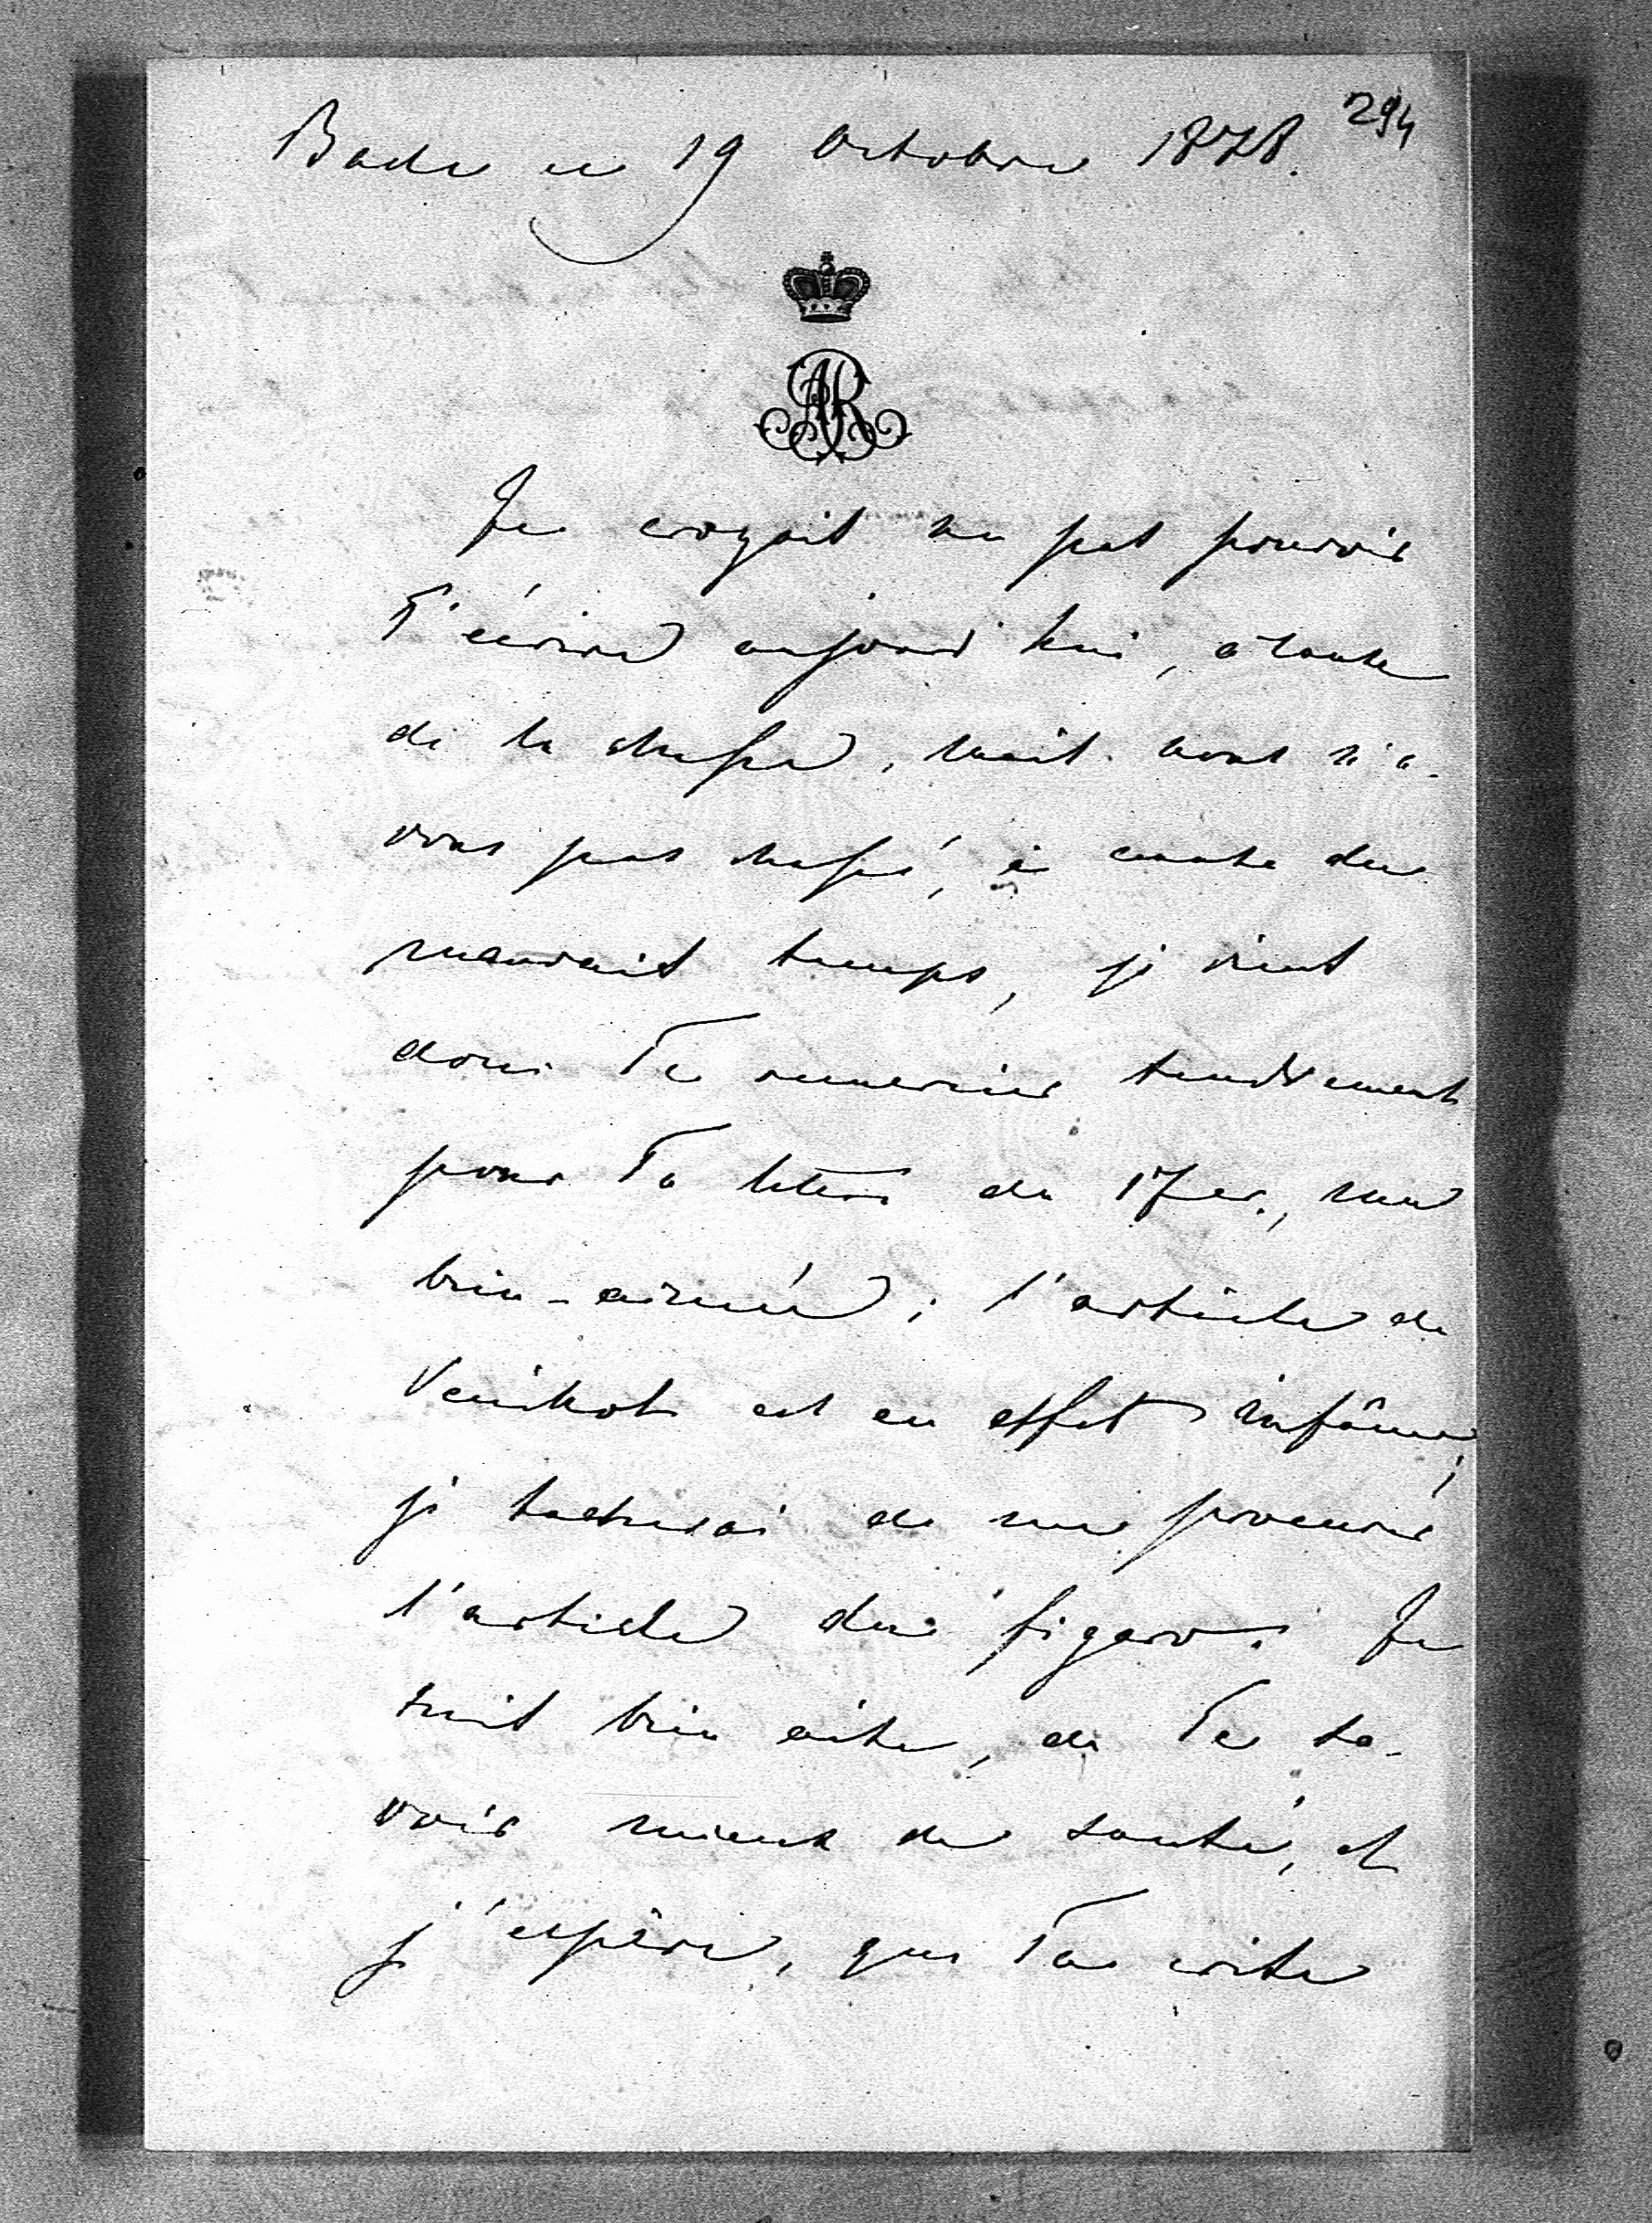 294
Bade ce 19 Octobre 1878.
AR
Je croyais ne pas pouvoir
T'écrire aujourd'hui, à cause
de la chasse, mais nous n'a-
vons pas chassé, à cause du
mauvais temps, je viens
donc Te remercier tendrement
pour Ta lettre du 17 cr., ma
bien-aimée; l'article de
Veuillot est en effet infâme;
je tacherai de me procurer
l'article du figaro. Je
suis bien aise, de Te sa-
voir mieux de santé, et
j'espère, que Ta crise